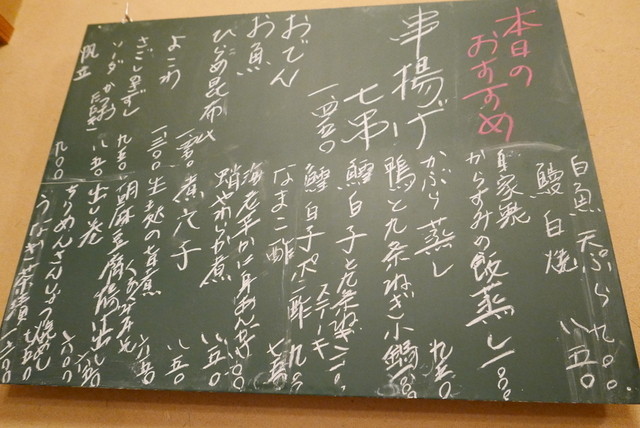 本日の
おすすめ
串揚げ
七串
一四五〇
おでん
お魚
ひらめ昆布〆
よこわ
一三〇〇
九五〇
八五〇
帆立
九〇〇
白魚 天ぷら 九〇〇
鰻白焼 八五〇
自家製
からすみの飯蒸し
かぶら蒸し 九五〇
鴨と九条ねぎ小鍋
鱈白子と九条ねぎ
ステーキ
鱈白子ポン酢 九〇〇
なまこ酢 七五〇
海老芋かに身あんかけ
蛸やわらか煮 八五〇
煮穴子 八五〇
生麸の旨煮 六五〇
胡麻豆腐揚げ出し
出し巻
ちりめんさんしょう
うなぎ茶漬